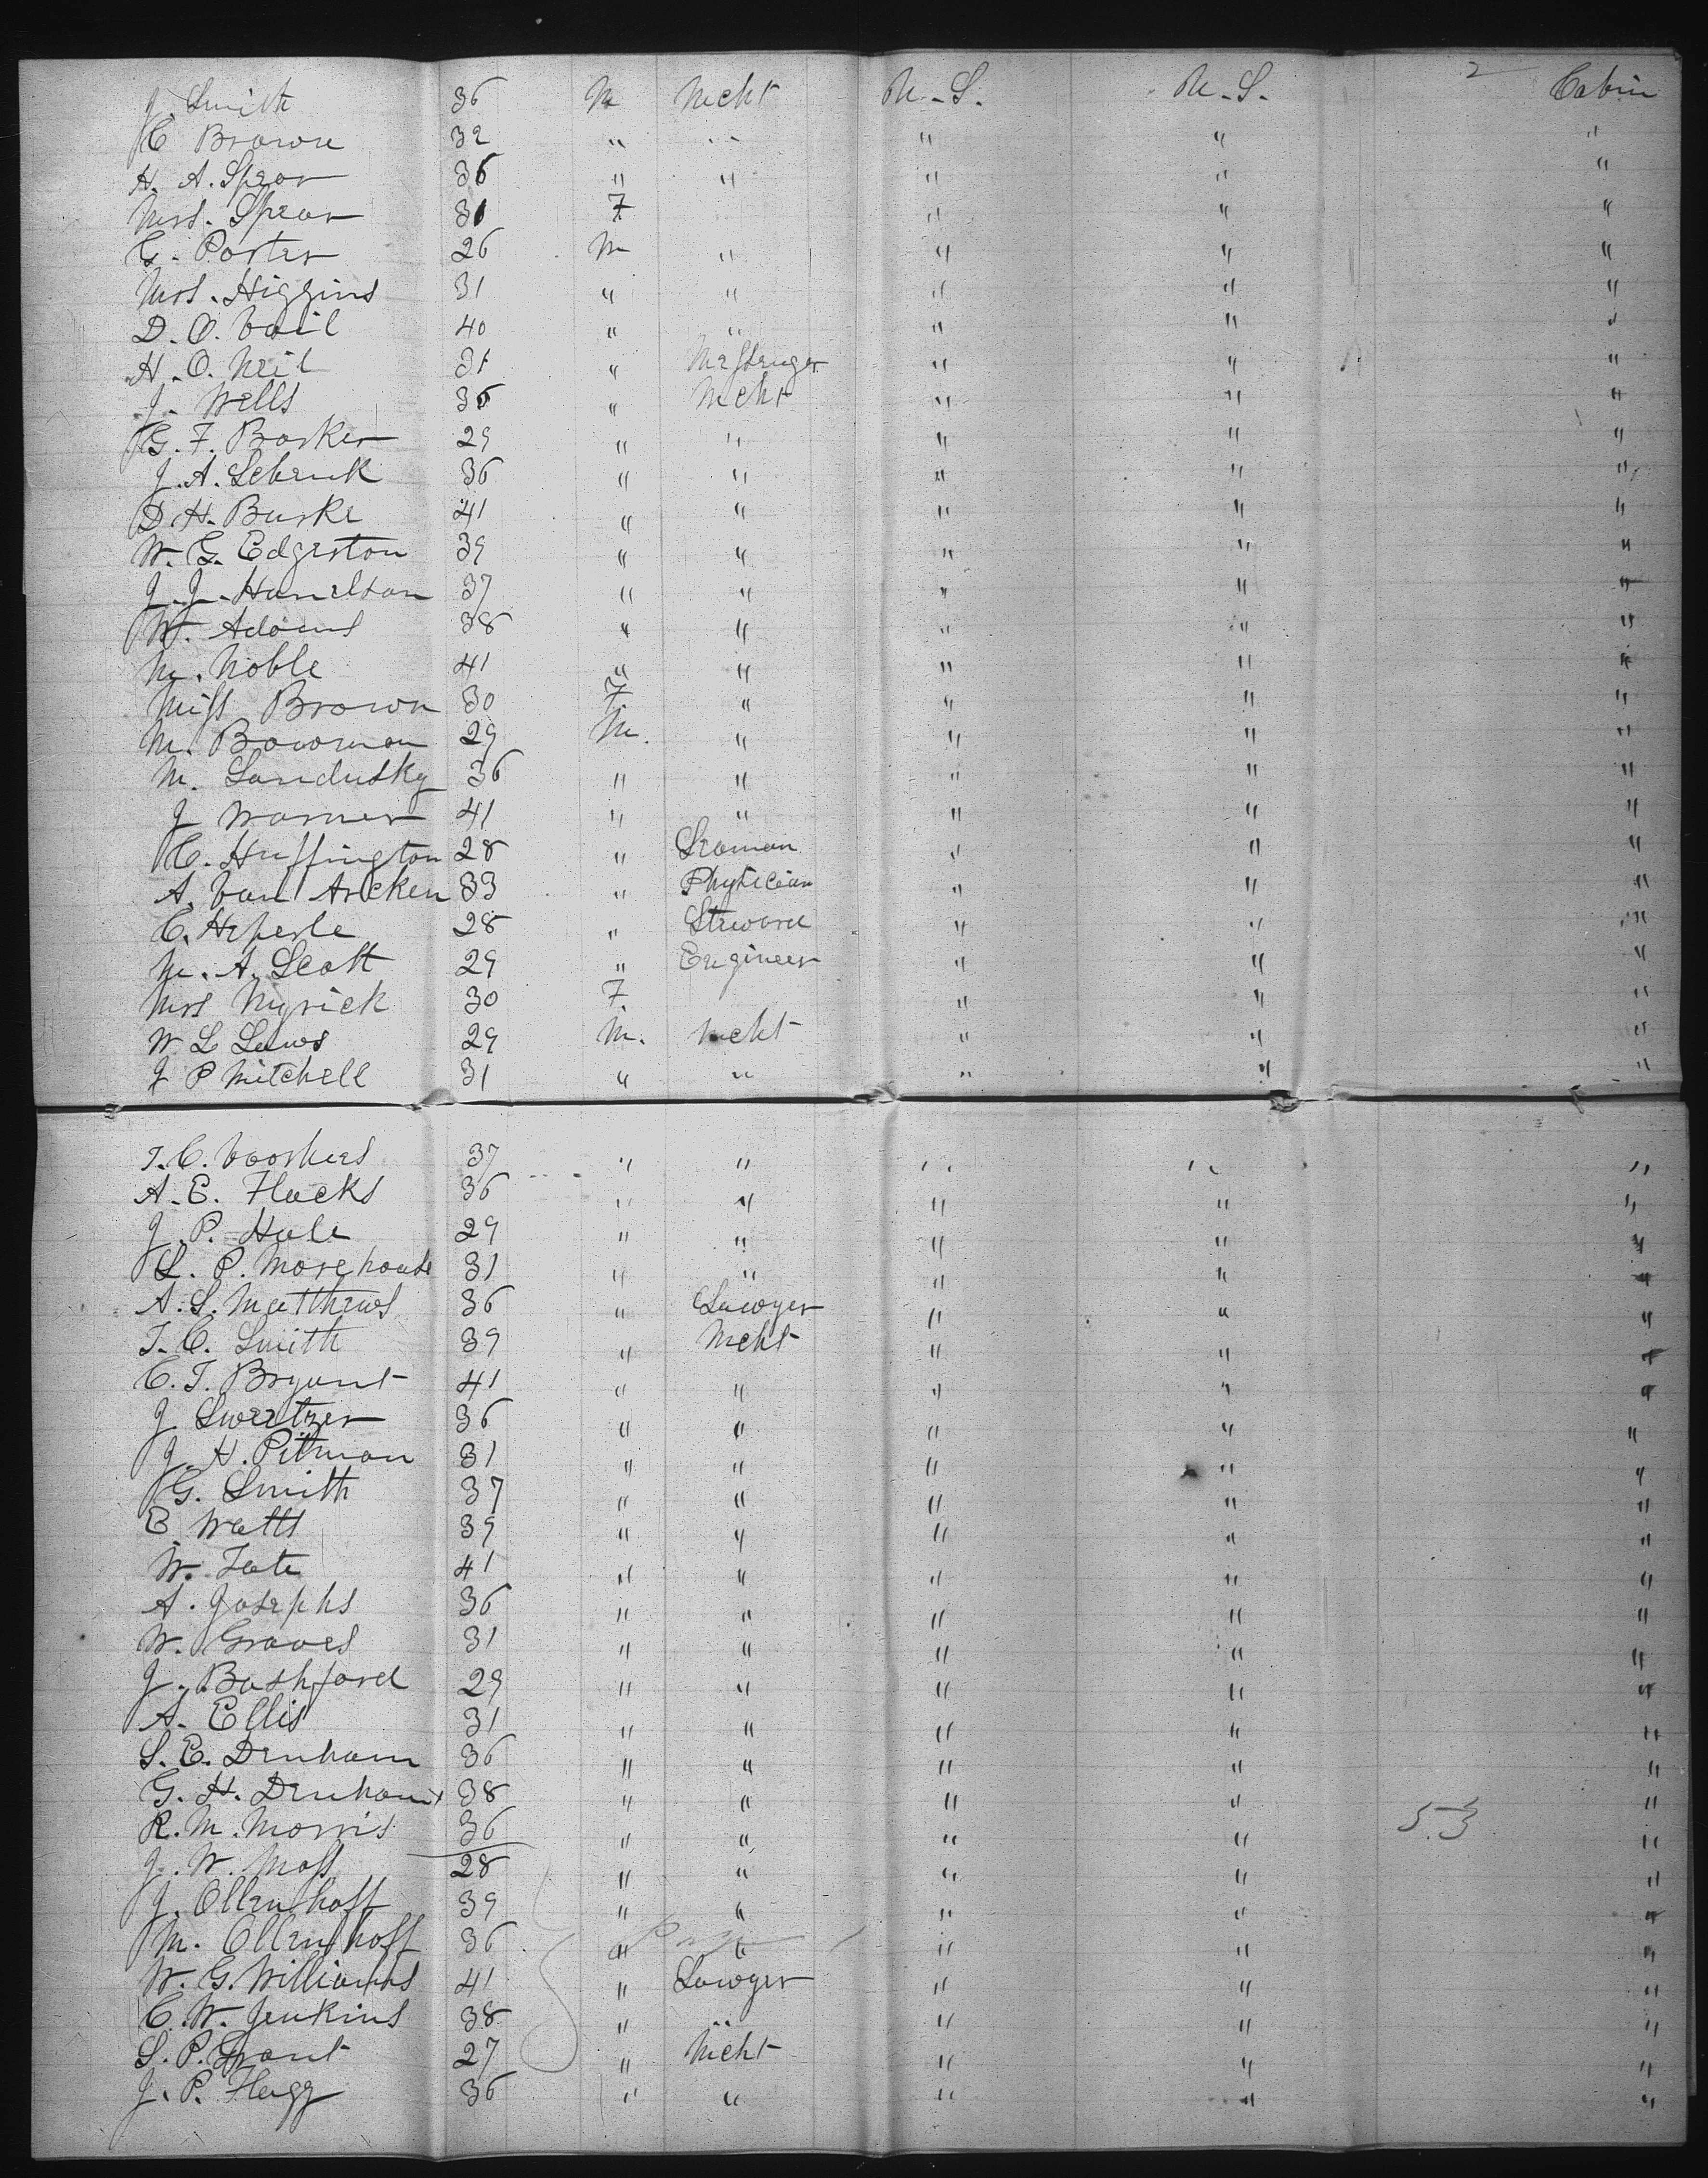 2
J. Smith 36 M Mcht U.S. U.S. Cabin
C Brown 32 " " " " "
H. A. Spear 36 " " " " "
Mrs. Spear 31 F " " "
G. Porter 26 M " " " "
Mrs. Higgins 31 " " " " "
D. O. Vail 40 " " " " "
H. O. Neil 31 " Messenger " " "
J. Wells 36 " Mcht " " "
G. F. Barker 29 " " " " "
J. A. Schenk 36 " " " " "
D. H. Burke 41 " " " " "
W. G. Edgerton 39 " " " " "
J. J. Hamelton 37 " " " " "
W. Adams 38 " " " " "
M. Noble 41 " " " " "
Miss Brown 30 F " " " "
M. Bowman 29 M. " " " "
M. Sandusky 36 " " " " "
J Warner 41 " " " " "
C. Huffington 28 " Seaman " " "
A. Van Arcken 33 " Physician " " "
C. Heperle 28 " Steward " " "
M. A. Scott 29 " Engineer " " "
Mrs Myrick 30 F. " " "
W L Laws 29 M. Mcht " " "
J P Mitchell 31 " " " " "
T. C. Voorhees 37 " " " " "
A. E. Flacks 36 " " " " "
J. P. Hale 29 " " " " "
L. P. Morehouse 31 " " " " "
A. S. Matthews 36 " Lawyer " " "
T. C. Smith 39 " Mcht " " "
C. T. Bryant 41 " " " " "
J Sweetzer 36 " " " " "
J. H. Pitman 31 " " " " "
G. Smith 37 " " " " "
E. Watts 39 " " " " "
W. Tate 41 " " " " "
A. Josephs 36 " " " " "
W. Graves 31 " " " " "
J. Bashford 29 " " " " "
A. Ellis 31 " " " " "
S. E. Denham 36 " " " " "
G. H. Denham 38 " " " " "
R. M. Morris 36 " " " " 53 "
J. W. Moss 28 " " " " "
J. Ollenshoff 39 " " " " "
M. Ollenshoff 36 " " " " "
W. G. Williams 41 " Lawyer " " "
C. W. Jenkins 38 " " " " "
S. P. Grant 27 " Mcht " " "
J. P. Flagg 36 " " " " "